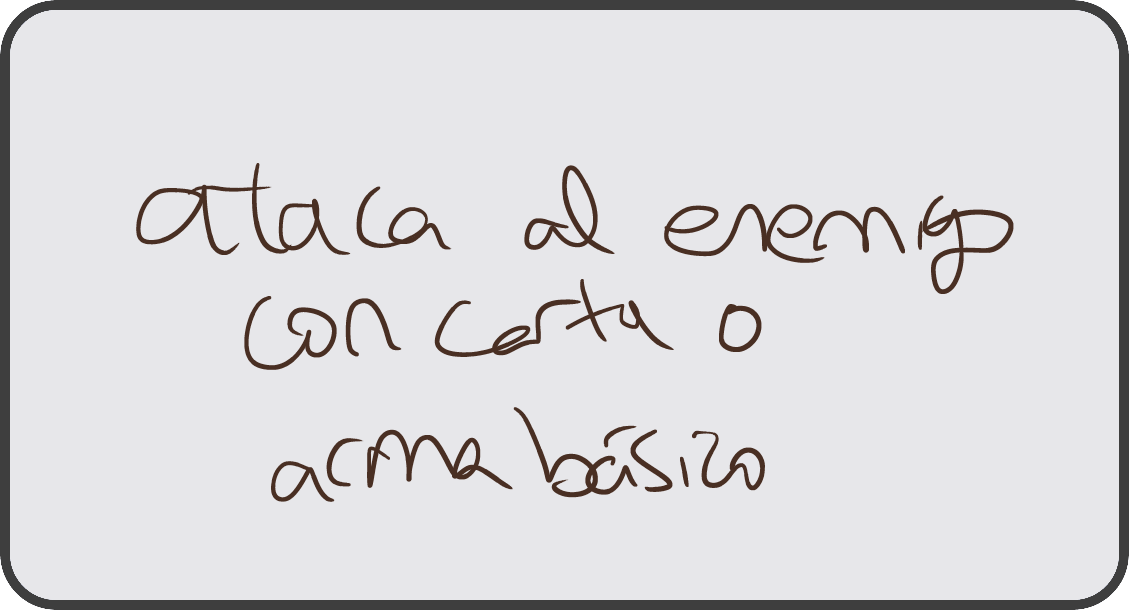 ataca al enemigo
con carta o
arma básico